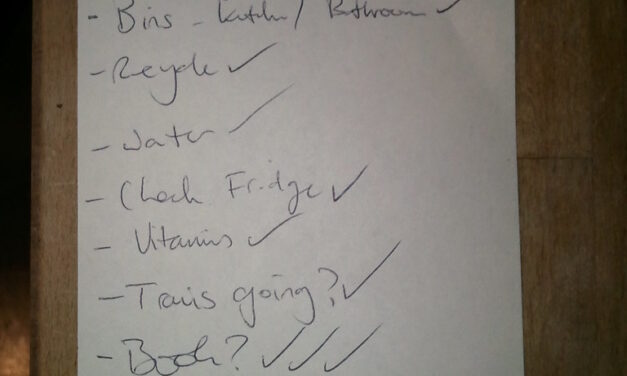 - Bins - Kitchen / Bathroom ✓
- Recycle ✓
- Water ✓
- Check Fridge ✓
- Vitamins ✓
- Trains going? ✓
- Book? ✓✓✓